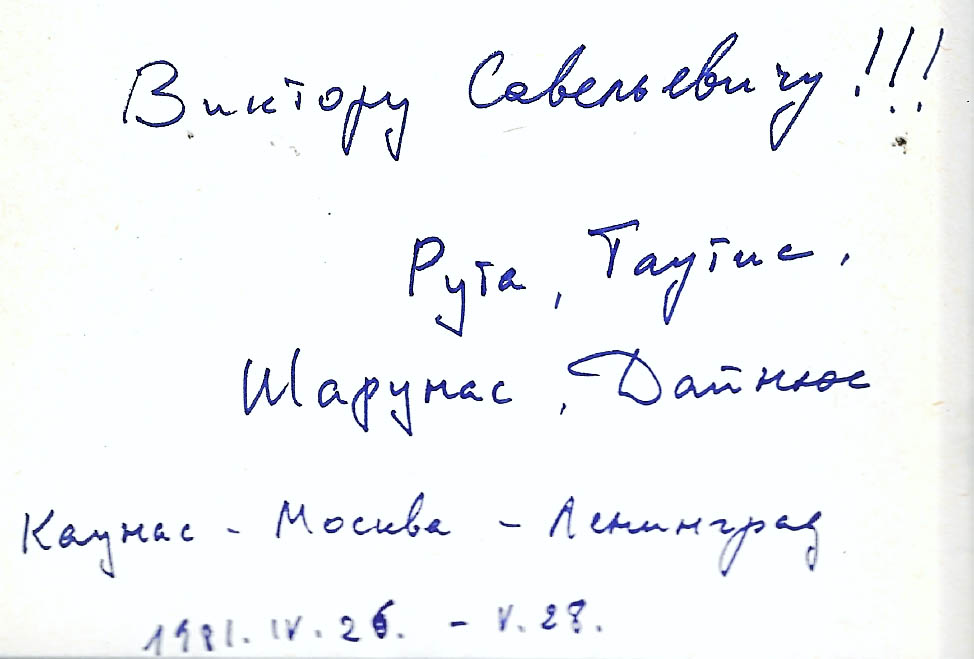 Виктору Савельевичу!!!
Рута, Таутис,
Шарунас, Дайнюс
Каунас - Москва - Ленинград
1981.IV.26. - V.28.